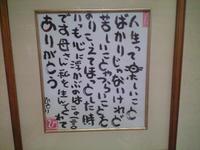 人生って楽しいこと
ばかりじゃないけれど
苦しいことやつらいことを
のりこえてほっとした時
いつも心に浮かぶのはこの言
です母さん私を生んでくれて
ありがとう